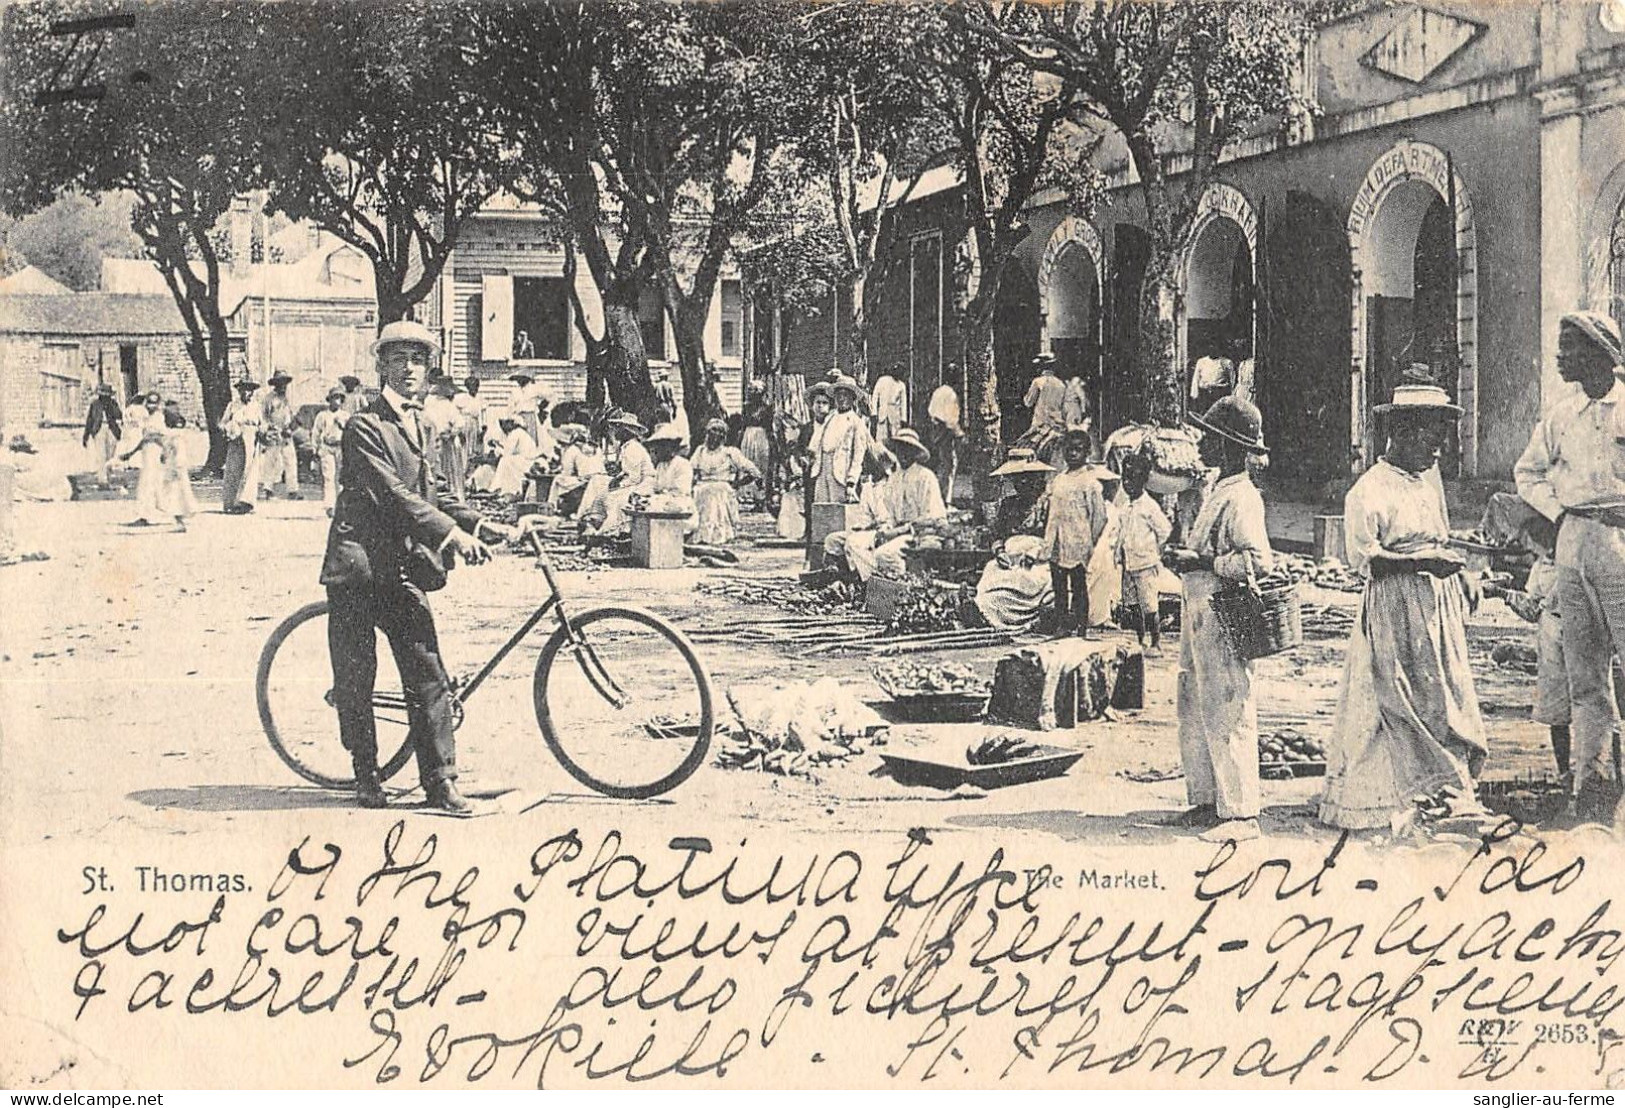 II.
RUM DEPARTME
St. Thomas.
The Market.
of the Platina type cort - I do
not care for views at present - only actors
& actresses - also pictures of stage scenes
St. Thomas. D. W. I.
R&W
H
2653.
sanglier-au-ferme